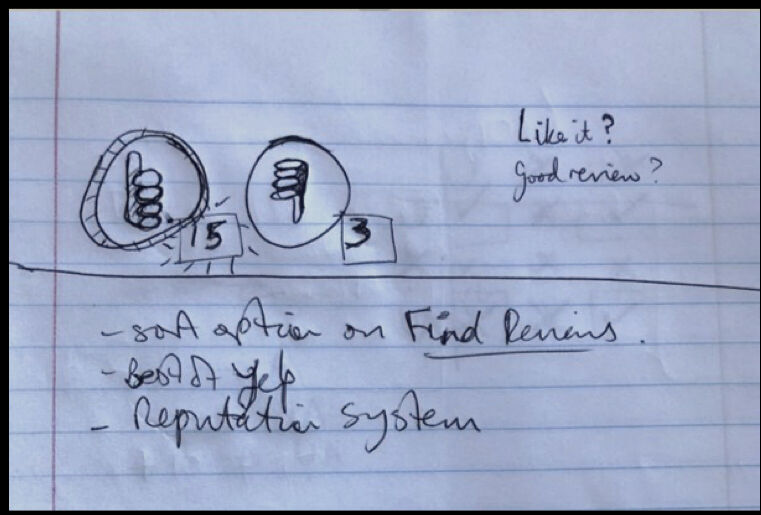 Like it?
Good review?
15
3
- sort option on Find Reviews.
- Best of yelp
- Reputation system